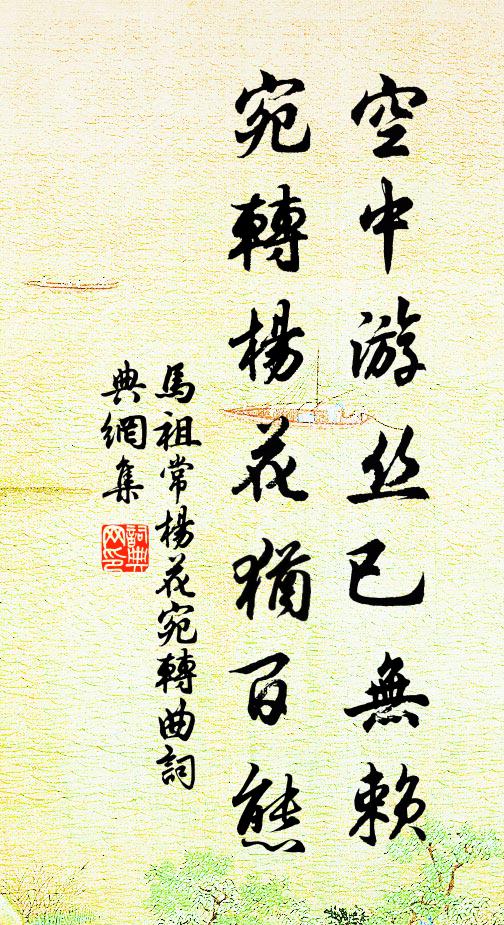 空中游丝已無賴
宛轉楊花猶百態
馬祖常楊花宛轉曲詞
典網集
詞典
网印